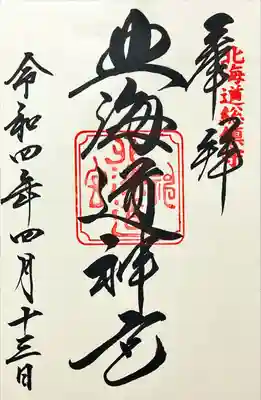 奉拝
北海道総鎮守
北海道神宮
令和四年四月十三日